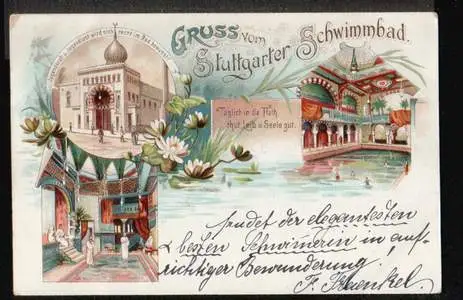 Gruss vom
Stuttgarter Schwimmbad.
wird nicht im Bad
Täglich in die Fluth,
thut Leib u. Seele gut.
sendet der elegantesten
& besten Schwimerin in auf-
richtiger Bewunderung
F. Haenkel.